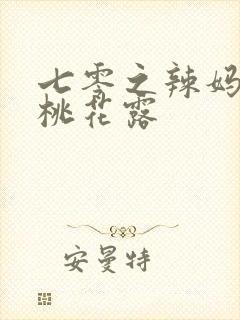 七零之辣妈
桃花露
安曼特